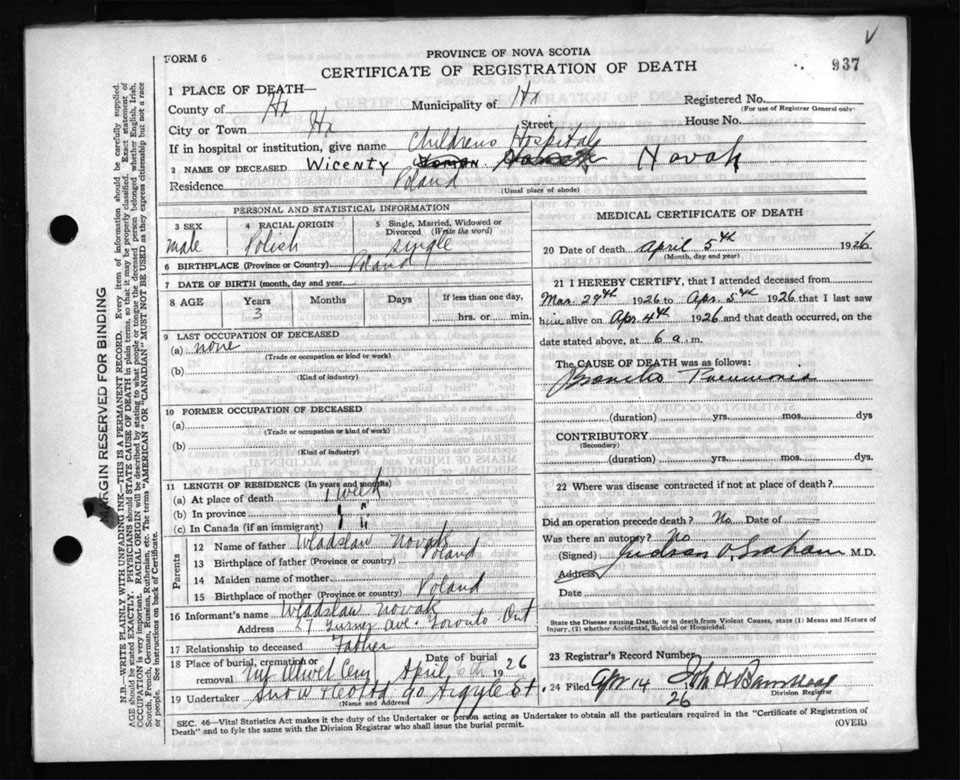 937
FORM 6
PROVINCE OF NOVA SCOTIA
CERTIFICATE OF REGISTRATION OF DEATH
1 PLACE OF DEATH—
County of Hx Municipality of Hx Registered No.
(For use of Registrar General only)
City or Town Hx Street House No.
If in hospital or institution, give name Childrens Hospital
2 NAME OF DECEASED Wicenty Novak
Residence Poland
(Usual place of abode)
PERSONAL AND STATISTICAL INFORMATION
3 SEX male
4 RACIAL ORIGIN Polish
5 Single, Married, Widowed or Divorced (Write the word) single
6 BIRTHPLACE (Province or Country) Poland
7 DATE OF BIRTH (month, day and year)
8 AGE Years Months Days If less than one day,
3 hrs. or min.
9 LAST OCCUPATION OF DECEASED
(a) none
(Trade or occupation or kind or work)
(b)
(Kind of industry)
10 FORMER OCCUPATION OF DECEASED
(a)
(Trade or occupation or kind of work)
(b)
(Kind of industry)
11 LENGTH OF RESIDENCE (In years and months)
(a) At place of death 1 week
(b) In province
(c) In Canada (if an immigrant)
Parents
12 Name of father Wladslaw Novak
13 Birthplace of father (Province or country) Poland
14 Maiden name of mother
15 Birthplace of mother (Province or country) Poland
16 Informant's name Wladslaw Novak
Address 57 Turner Ave. Toronto Ont
17 Relationship to deceased Father
18 Place of burial, cremation or removal Mt Olivet Cem Date of burial April 6th 1926
19 Undertaker Snow & Co Ltd 90 Argyle St.
(Name and Address)
MEDICAL CERTIFICATE OF DEATH
20 Date of death April 5th 1926.
(Month, day and year)
21 I HEREBY CERTIFY, that I attended deceased from
Mar 29th 1926 to Apr. 5th 1926 that I last saw
him alive on Apr 4th 1926 and that death occurred, on the
date stated above, at 6 a.m.
The CAUSE OF DEATH was as follows:
Broncho Pneumonia
(duration) yrs. mos. dys
CONTRIBUTORY
(Secondary)
(duration) yrs. mos. dys.
22 Where was disease contracted if not at place of death?
Did an operation precede death? No Date of —
Was there an autopsy? No
(Signed) Judson V. Graham M.D.
Address
Date
State the Disease causing Death, or in death from Violent Causes, state (1) Means and Nature of
Injury, (2) whether Accidental, Suicidal or Homicidal.
23 Registrar's Record Number
24 Filed Apr 14 26
Division Registrar
SEC. 46—Vital Statistics Act makes it the duty of the Undertaker or person acting as Undertaker to obtain all the particulars required in the "Certificate of Registration of
Death" and to fyle the same with the Division Registrar who shall issue the burial permit.
(OVER)
MARGIN RESERVED FOR BINDING
N.B.—WRITE PLAINLY WITH UNFADING INK—THIS IS A PERMANENT RECORD. Every item of information should be carefully supplied.
AGE should be stated EXACTLY. PHYSICIANS should STATE CAUSE OF DEATH in plain terms, so that it may be properly classified. Exact statement of
OCCUPATION is very important. RACIAL ORIGIN will be described by stating to what people or tongue the deceased person belonged whether English, Irish,
Scotch, French, German, Russian, Ruthenian, etc. The terms "AMERICAN" OR "CANADIAN" MUST NOT BE USED as they express citizenship but not a race
or people. See instructions on back of Certificate.